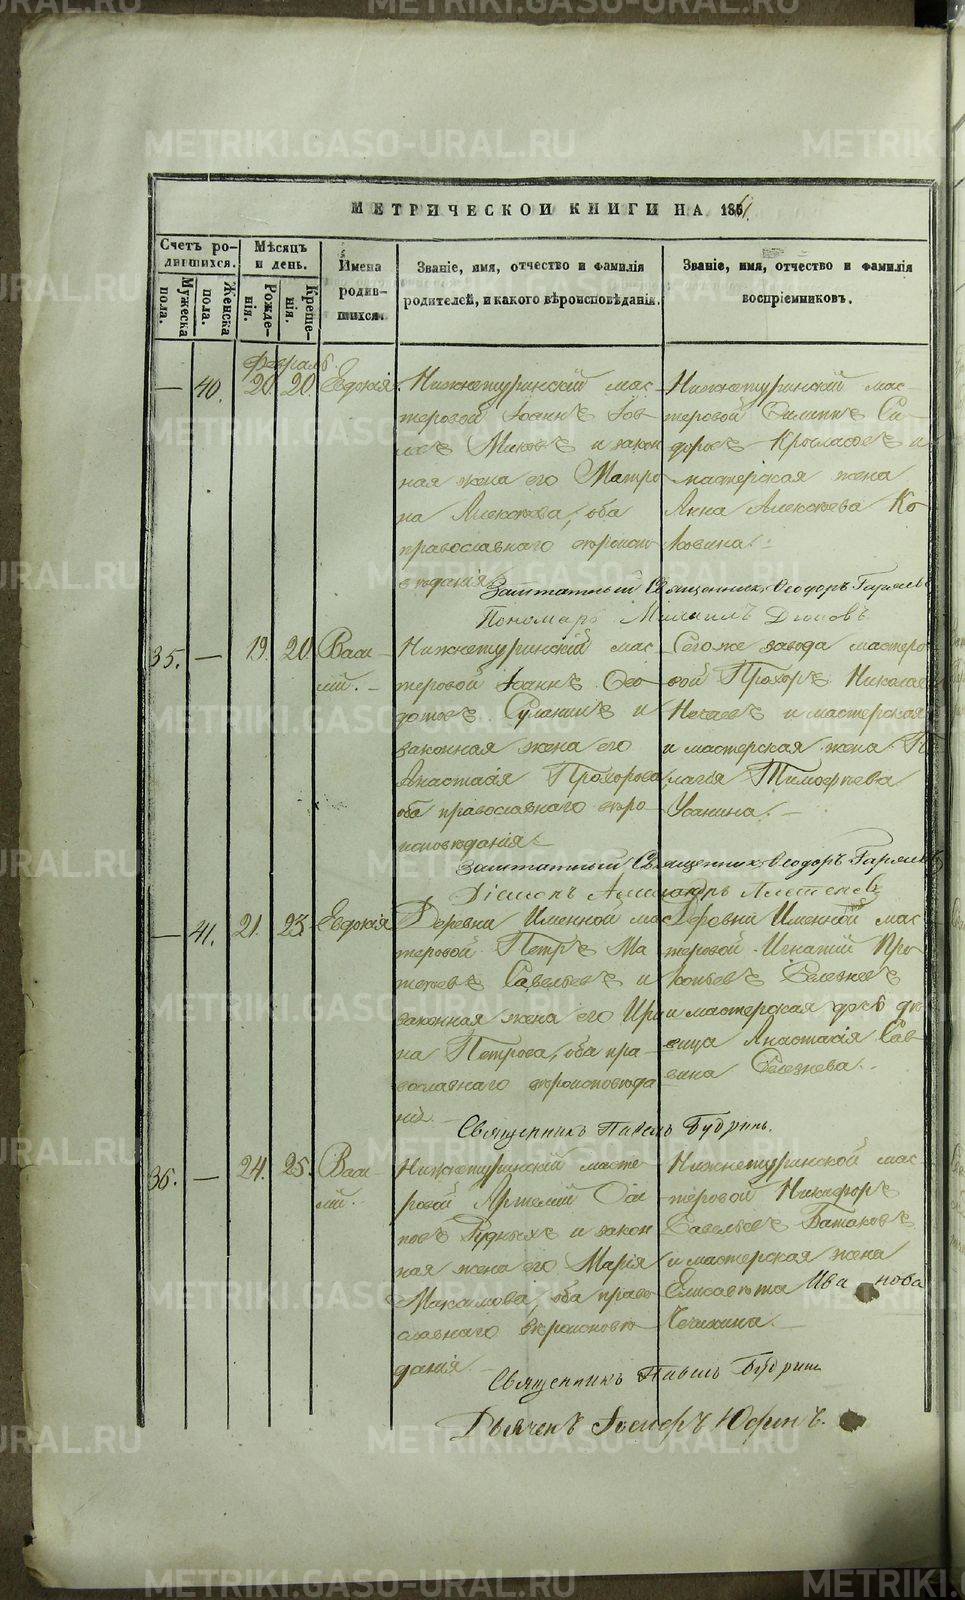 МЕТРИЧЕСКОЙ КНИГИ НА 1861.
Счетъ ро-
дившихся.
Мужеска
пола.
Женска
пола.
Мѣсяцъ
и день.
Рожде-
нія.
Креще-
нія.
Имена
родив-
шихся.
Званіе, имя, отчество и фамилія
родителей, и какого вѣроисповѣданія.
Званіе, имя, отчество и фамилія
воспріемниковъ.
Февраль
— 40. 20. 20. Евдокія
Нижнетуринскій мас-
теровой Іоаннъ
и закон
ная жена его Матро
на Алексѣева, оба
православнаго вѣроиспо
вѣданія
Нижнетуринскій мас-
теровой Филиппъ Си-
доровъ и
мастерская жена
Анна Алексѣева Ко
Заштатный Священникъ Ѳеодоръ
Пономарь Михаилъ
35. — 19. 20. Васи-
лій.
Нижнетуринскій мас-
теровой Іоаннъ Ѳео
дотовъ и
законная жена его
Анастасія Прохорова
оба православнаго вѣро-
исповѣданія.
Сего же завода мастеро
вой Прохоръ Николаев
Нечаевъ и мастерская
и мастерская жена Пе
лагія Тимофѣева
Усанина.
Заштатный Священникъ Ѳеодоръ
Діаконъ Александръ
— 41. 21. 23. Евдокія
Деревни Именной мас
теровой Петръ Ма
твѣевъ Савельевъ и
законная жена его Ири
на Петрова, оба пра-
вославнаго вѣроисповѣда
нія.
Деревни Именной мас-
теровой Игнатій Про
копьевъ Селезневъ
и мастерская дочь дѣ
вица Анастасія Сав-
вина Селезнева.
Священникъ Павелъ Будринъ.
36. — 24. 25. Васи-
лій.
Нижнетуринскій масте-
ровой Артемій Оси
повъ Рудныхъ и закон
ная жена его Марія
Максимова, оба право
славнаго вѣроисповѣ
данія
Нижнетуринской мас-
теровой Никифоръ
Савельевъ Батаковъ
и мастерская жена
Елисавета Иванова
Священникъ Павелъ Будринъ
Дьячекъ Юринъ.
METRIKI.GASO-URAL.RU